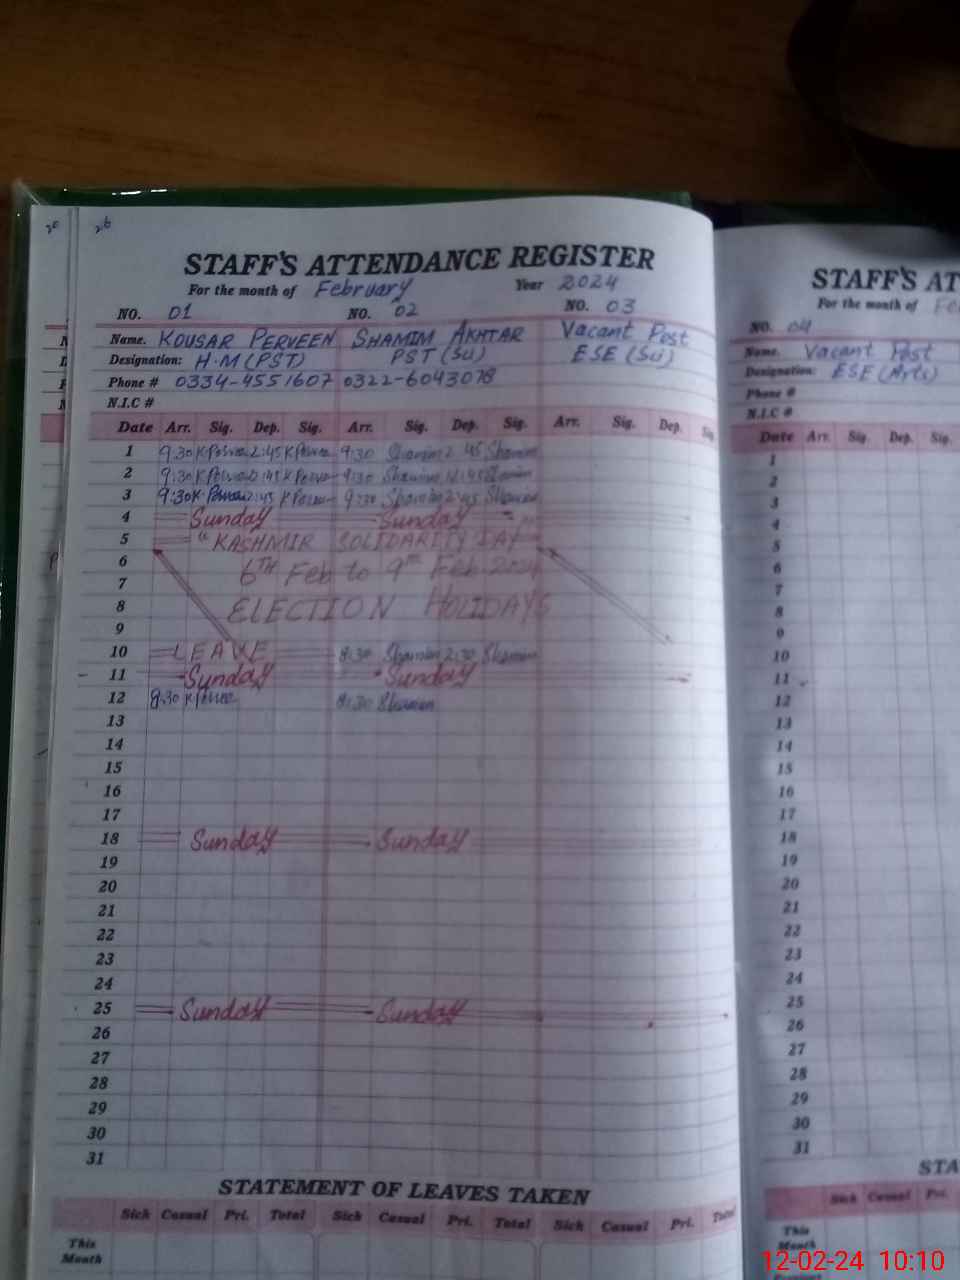 26
STAFF'S ATTENDANCE REGISTER
For the month of February Year 2024
NO. 01 NO. 02 NO. 03
Name. KOUSAR PERVEEN SHAMIM AKHTAR Vacant Post
Designation: H.M (PST) PST (Sci) ESE (Sci)
Phone # 0334-4551607 0322-6043078
N.I.C #
Date Arr. Sig. Dep. Sig. Arr. Sig. Dep. Sig. Arr. Sig. Dep. Sig.
1 9:30 K Perveen 2:45 K Perveen 9:30 Shamim 2:45 Shamim
2 9:30 K Perveen 2:45 K Perveen 9:30 Shamim 2:45 Shamim
3 9:30 K Perveen 2:45 K Perveen 9:30 Shamim 2:45 Shamim
4 Sunday Sunday
5 "KASHMIR SOLIDARITY DAY"
6 6TH Feb to 9TH Feb 2024
7
8 ELECTION HOLIDAYS
9
10 LEAVE 8:30 Shamim 2:30 Shamim
11 Sunday Sunday
12 8:30 K Perveen 8:30 Shamim
13
14
15
16
17
18 Sunday Sunday
19
20
21
22
23
24
25 Sunday Sunday
26
27
28
29
30
31
STATEMENT OF LEAVES TAKEN
Sick Casual Pri. Total Sick Casual Pri. Total Sick Casual Pri. Total
This
Month
STAFF'S AT
For the month of Fe
NO. 04
Name. Vacant Post
Designation: ESE (Arts)
Phone #
N.I.C #
Date Arr. Sig. Dep. Sig.
1
2
3
4
5
6
7
8
9
10
11
12
13
14
15
16
17
18
19
20
21
22
23
24
25
26
27
28
29
30
31
STA
Sick Casual Pri.
This
Month
12-02-24 10:10